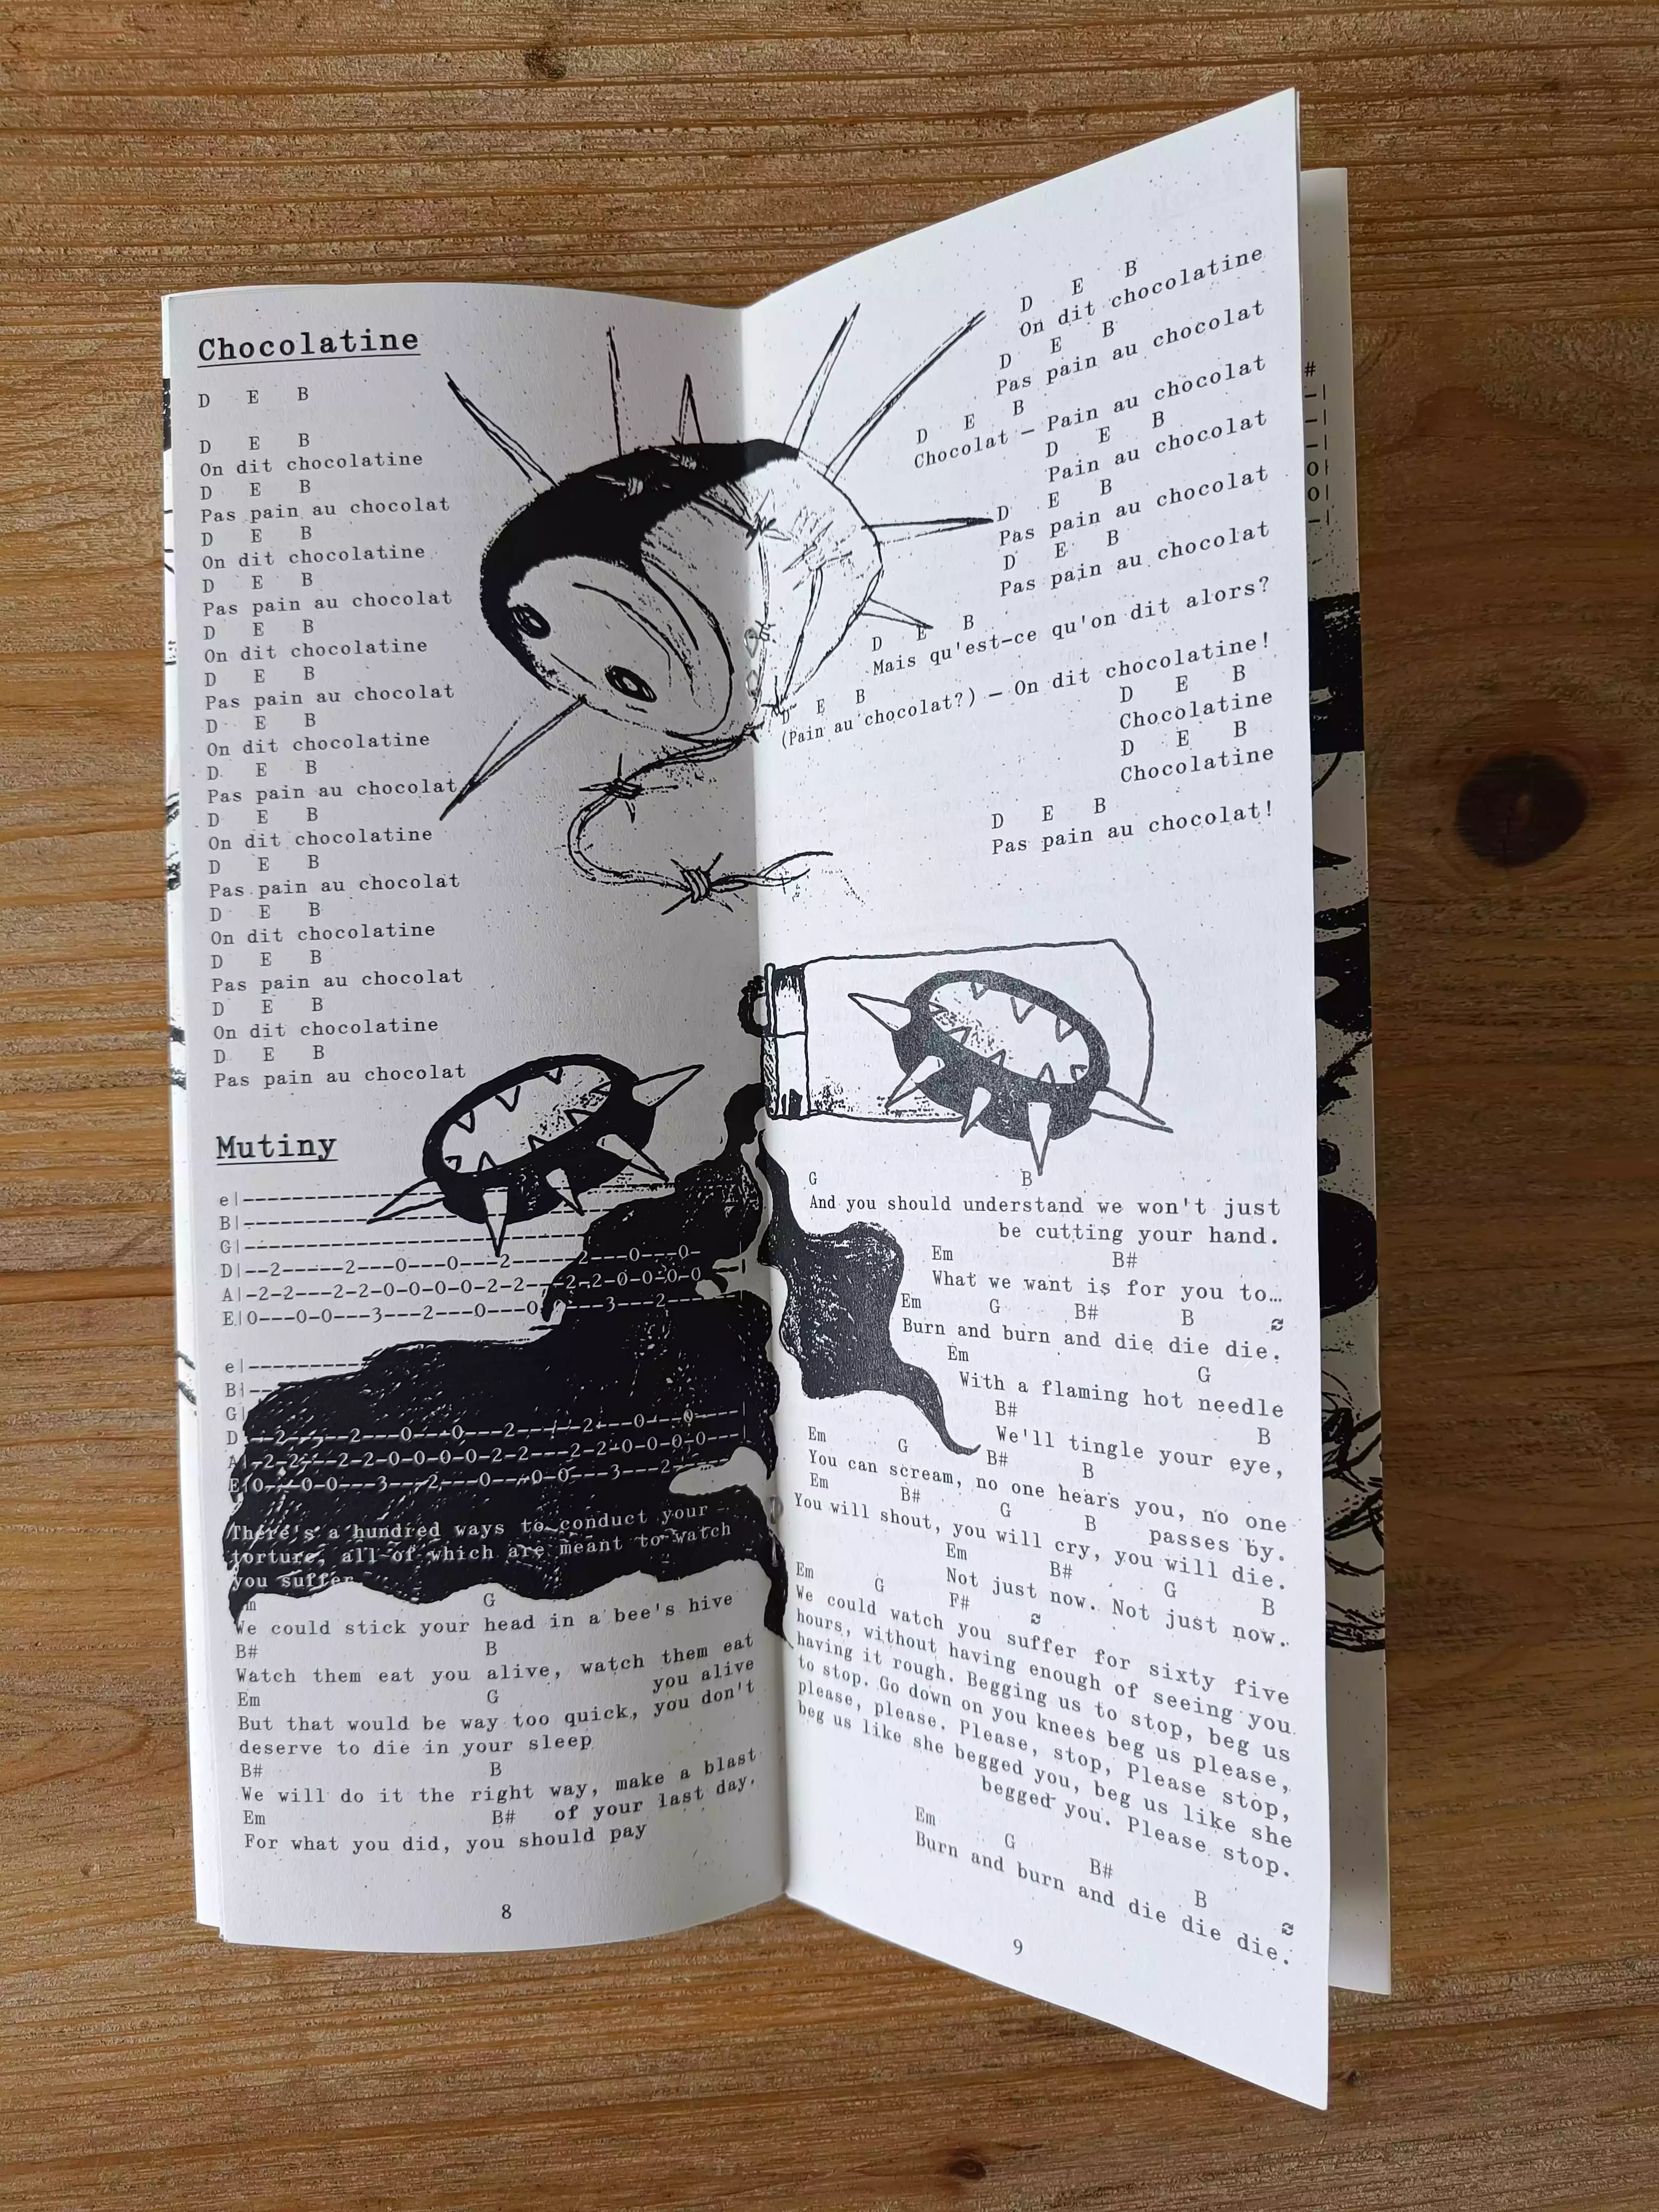 Chocolatine
D E B
D E B
On dit chocolatine
D E B
Pas pain au chocolat
D E B
On dit chocolatine
D E B
Pas pain au chocolat
D E B
On dit chocolatine
D E B
Pas pain au chocolat
D E B
On dit chocolatine
D E B
Pas pain au chocolat
D E B
On dit chocolatine
D E B
Pas pain au chocolat
D E B
On dit chocolatine
D E B
Pas pain au chocolat
D E B
On dit chocolatine
D E B
Pas pain au chocolat
Mutiny
e|
B|
G|
D|--2-----2---0---0---2------2---0---0-
A|-2-2---2-2-0-0-0-0-2-2---2-2-0-0-0-0
E|0---0-0---3---2---0---0-----3---2----
e|
B|
G|
D|--2-----2---0---0---2-----2---0---0----|
A|-2-2---2-2-0-0-0-0-2-2---2-2-0-0-0-0---|
E|0---0-0---3---2---0---0-0---3---2-----
There's a hundred ways to conduct your
torture, all of which are meant to watch
you suffer
Em G
We could stick your head in a bee's hive
B# B
Watch them eat you alive, watch them eat
you alive
Em G
But that would be way too quick, you don't
deserve to die in your sleep
B# B
We will do it the right way, make a blast
of your last day,
Em B#
For what you did, you should pay
8
D E B
On dit chocolatine
D E B
Pas pain au chocolat
D E B
Chocolat — Pain au chocolat
D E B
Pain au chocolat
D E B
Pas pain au chocolat
D E B
Pas pain au chocolat
D E B
Mais qu'est-ce qu'on dit alors?
D E B
(Pain au chocolat?) — On dit chocolatine!
D E B
Chocolatine
D E B
Chocolatine
D E B
Pas pain au chocolat!
G B
And you should understand we won't just
be cutting your hand.
Em B#
What we want is for you to…
Em G B# B
Burn and burn and die die die.
Em G
With a flaming hot needle
B# B
We'll tingle your eye,
Em G B# B
You can scream, no one hears you, no one
passes by.
Em B# G B
You will shout, you will cry, you will die.
Em B# G B
Not just now. Not just now.
Em G F#
We could watch you suffer for sixty five
hours, without having enough of seeing you
having it rough. Begging us to stop, beg us
to stop. Go down on you knees beg us please,
please, please. Please, stop, Please stop,
beg us like she begged you, beg us like she
begged you. Please stop.
Em G B# B
Burn and burn and die die die.
9
#